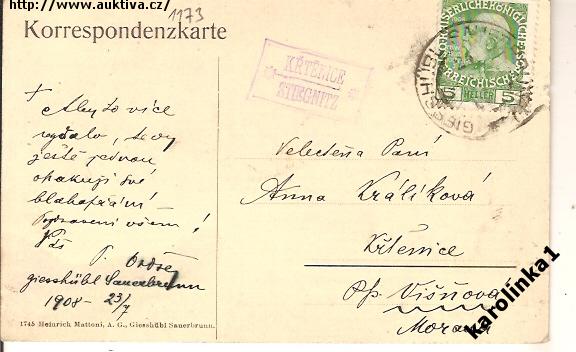 www.auktiva.cz
1173
Korrespondenzkarte
KŘTĚNICE
STIEGNITZ
KAISERLICHE KÖNIGLICHE
ÖSTERREICHISCHE
5 HELLER 5
GIESSHÜBL SAUERBRUNN
Aby to více
vydalo, tedy
ještě jednou
opakuji své
blahopřání!
Pozdravení všem!
Váš
P.
giesshübl Sauerbrunn
1908 - 23/7
Velectěná Paní
Anna Králíková
Křtěnice
Pp. Višňová
Morava
1745 Heinrich Mattoni, A. G., Giesshübl Sauerbrunn.
karolinka1